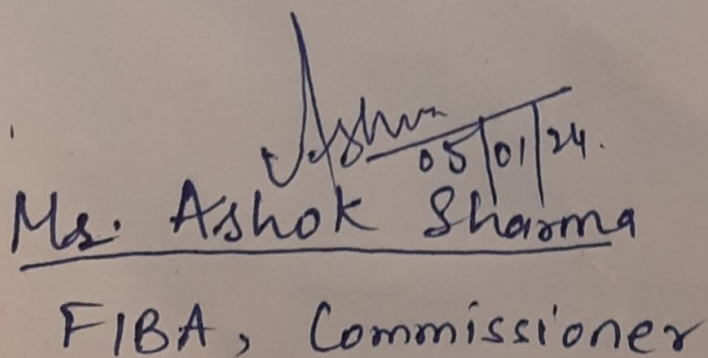 Ashu
05/01/24.
Mr. Ashok Sharma
FIBA, Commissioner